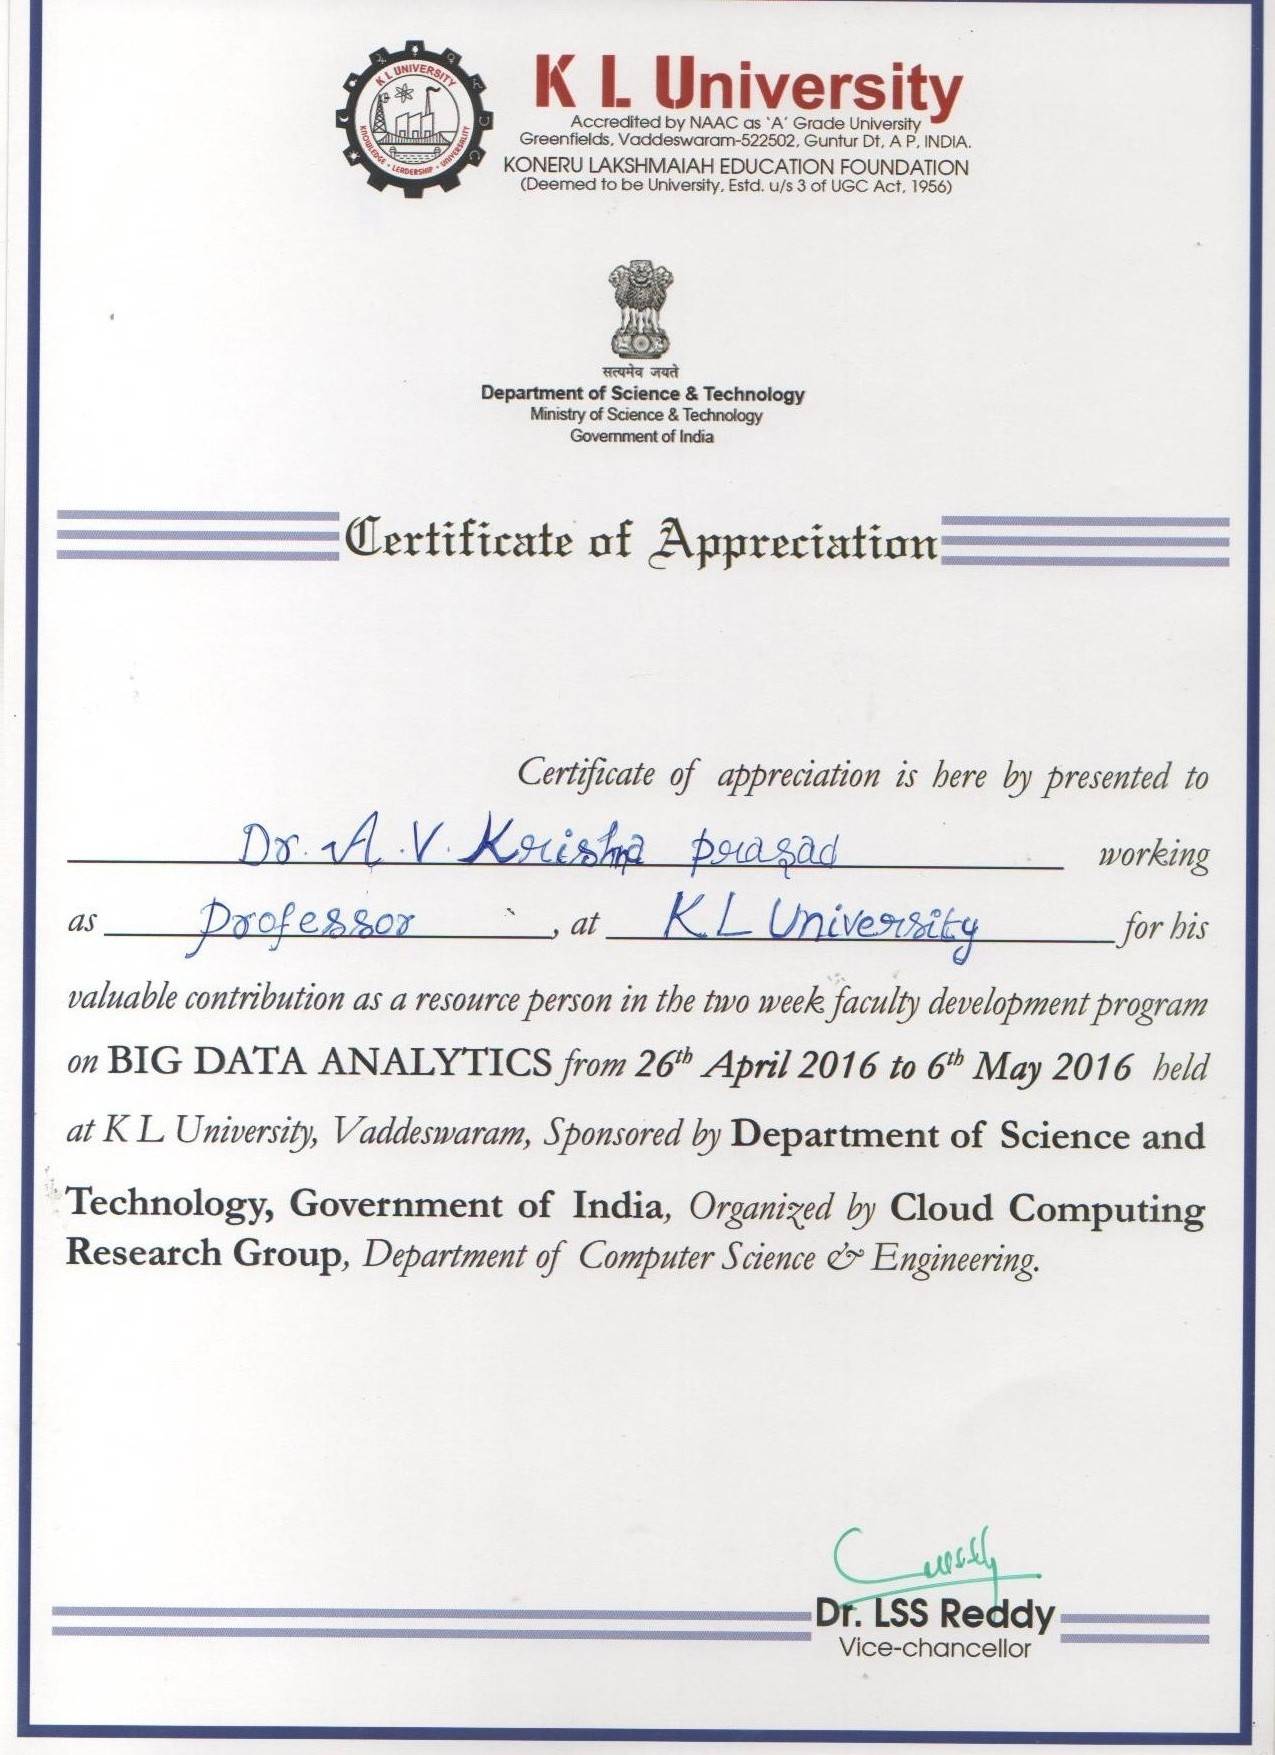 K L UNIVERSITY
KNOWLEDGE - LEADERSHIP - UNIVERSALITY
K L University
Accredited by NAAC as 'A' Grade University
Greenfields, Vaddeswaram-522502, Guntur Dt, A P, INDIA.
KONERU LAKSHMAIAH EDUCATION FOUNDATION
(Deemed to be University, Estd. u/s 3 of UGC Act, 1956)
सत्यमेव जयते
Department of Science & Technology
Ministry of Science & Technology
Government of India
Certificate of Appreciation
Certificate of appreciation is here by presented to
Dr. A.V. Krishna prasad working
as professor, at K L University for his
valuable contribution as a resource person in the two week faculty development program
on BIG DATA ANALYTICS from 26th April 2016 to 6th May 2016 held
at K L University, Vaddeswaram, Sponsored by Department of Science and
Technology, Government of India, Organized by Cloud Computing
Research Group, Department of Computer Science & Engineering.
Dr. LSS Reddy
Vice-chancellor